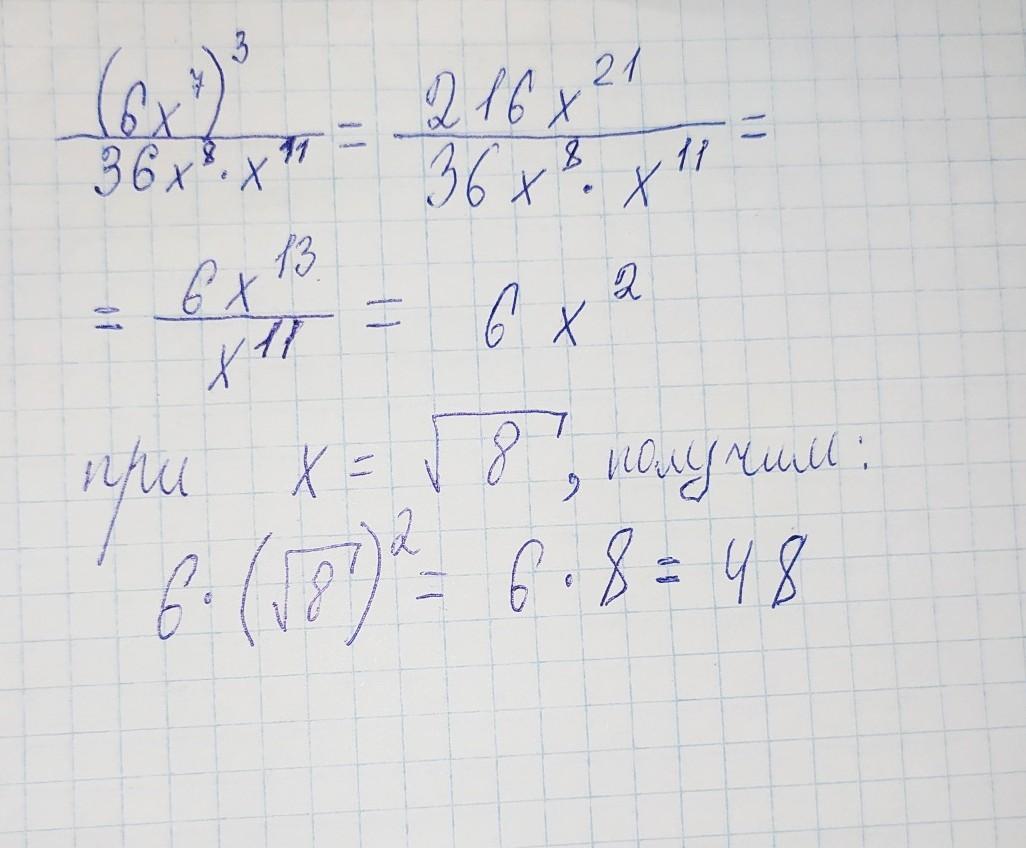 (6x⁷)³/36x⁸·x¹¹ = 216x²¹/36x⁸·x¹¹ =
= 6x¹³/x¹¹ = 6x²
при x = √8, получим:
6·(√8)² = 6·8 = 48